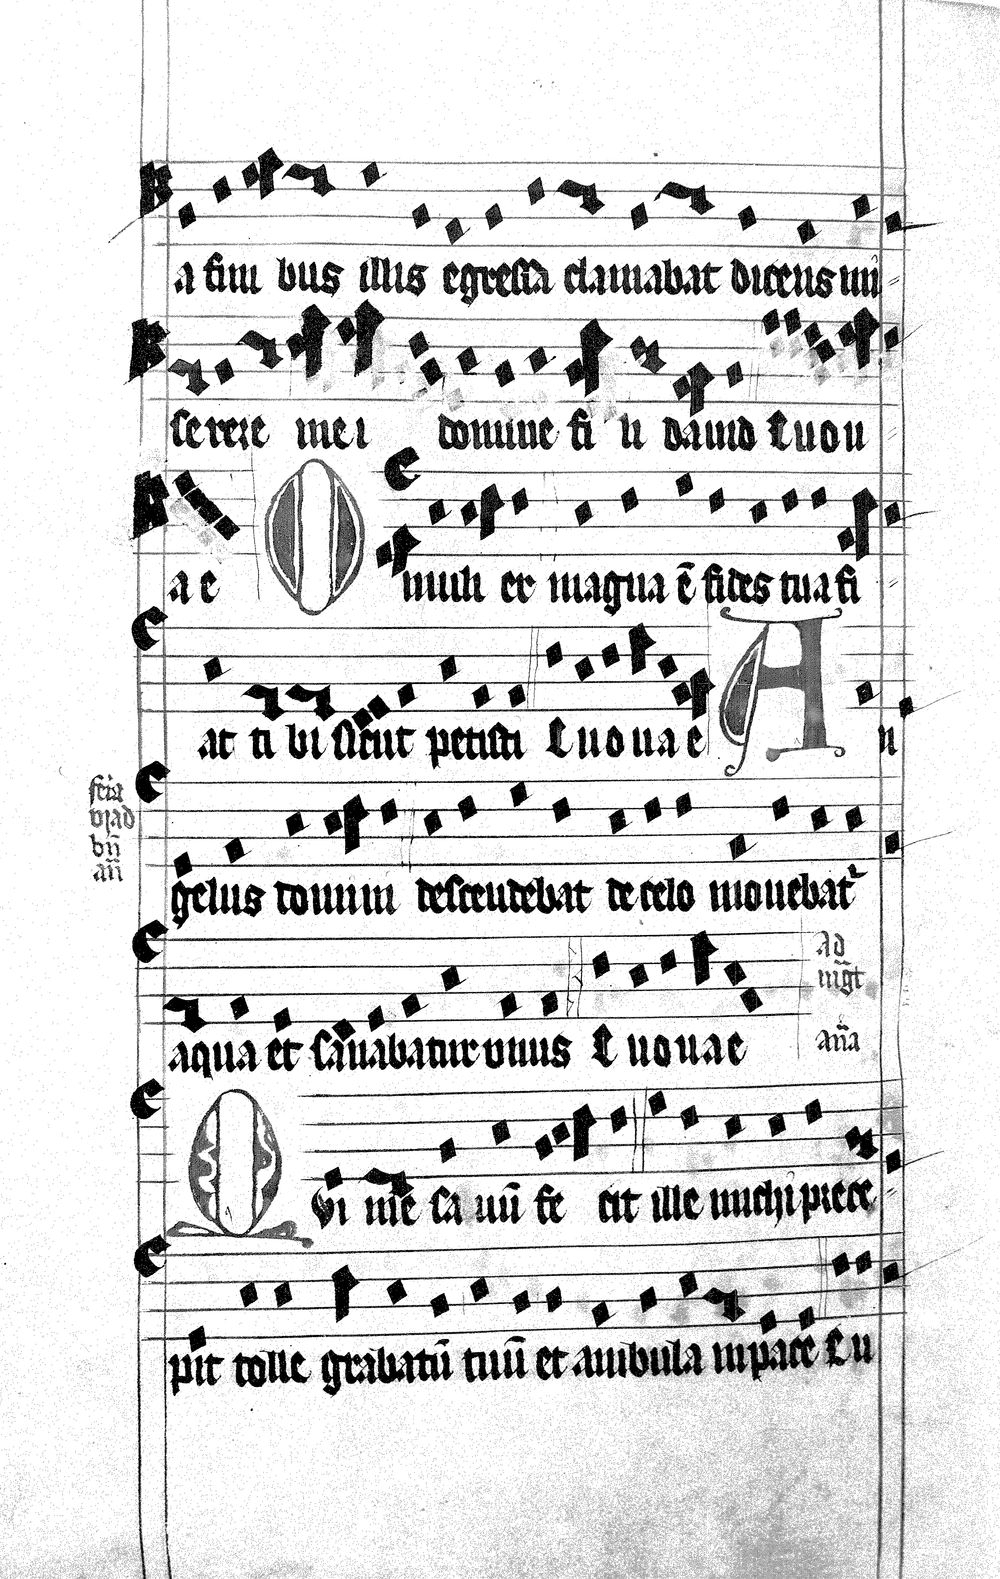 a finibus illis egressa clamabat dicens mi
serere mei domine fili david Euou
ae O mulier magna ē fides tua fi
at tibi sicut petisti Euouae An
feria
vj ad
bn̄
an̄
gelus domini descendebat de celo movebat²
aqua et sanabatur unus Euouae
ad
mgt
an̄a
Qui me sanū fecit ille michi prece
pit tolle grabatū tuū et ambula in pace Eu